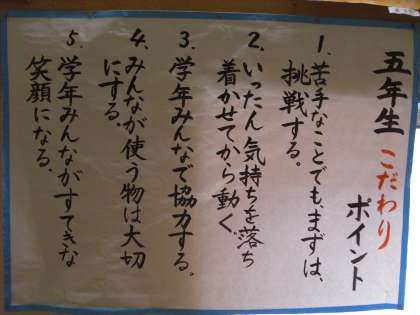 五年生こだわりポイント
1.苦手なことでも、まずは、
挑戦する。
2.いったん気持ちを落ち
着かせてから動く。
3.学年みんなで協力する。
4.みんなが使う物は大切
にする。
5.学年みんながすてきな
笑顔になる。